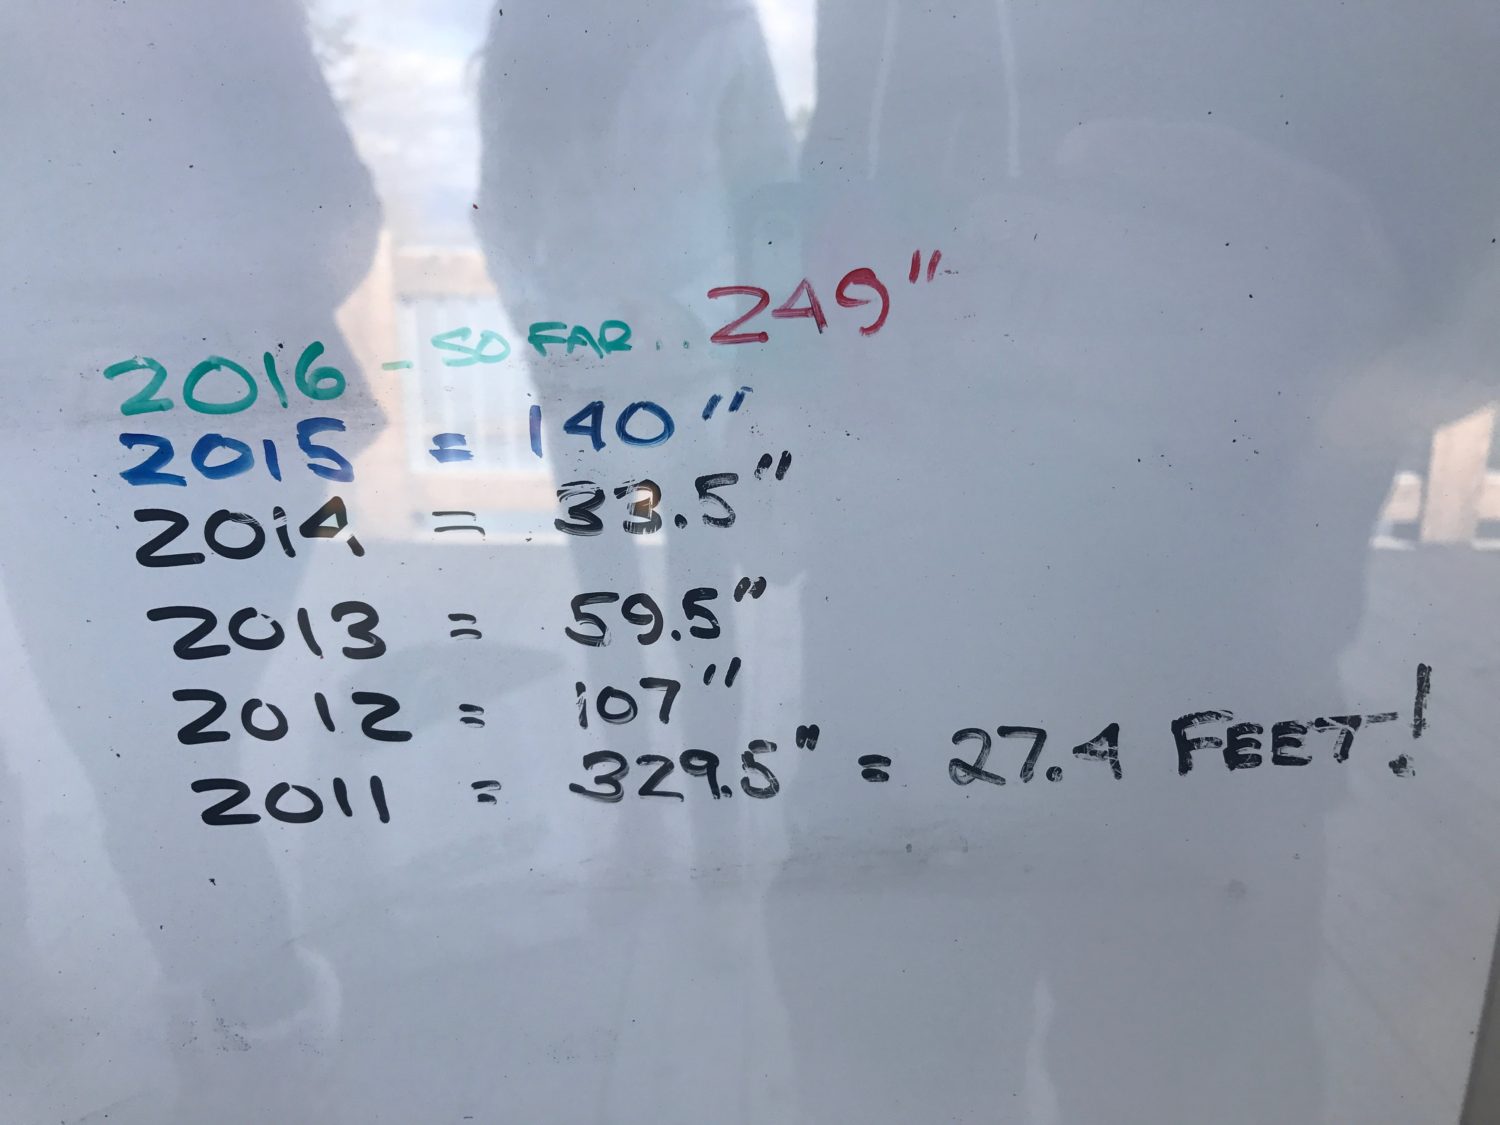 2016 - SO FAR... 249"
2015 = 140"
2014 = 33.5"
2013 = 59.5"
2012 = 107"
2011 = 329.5" = 27.4 FEET!